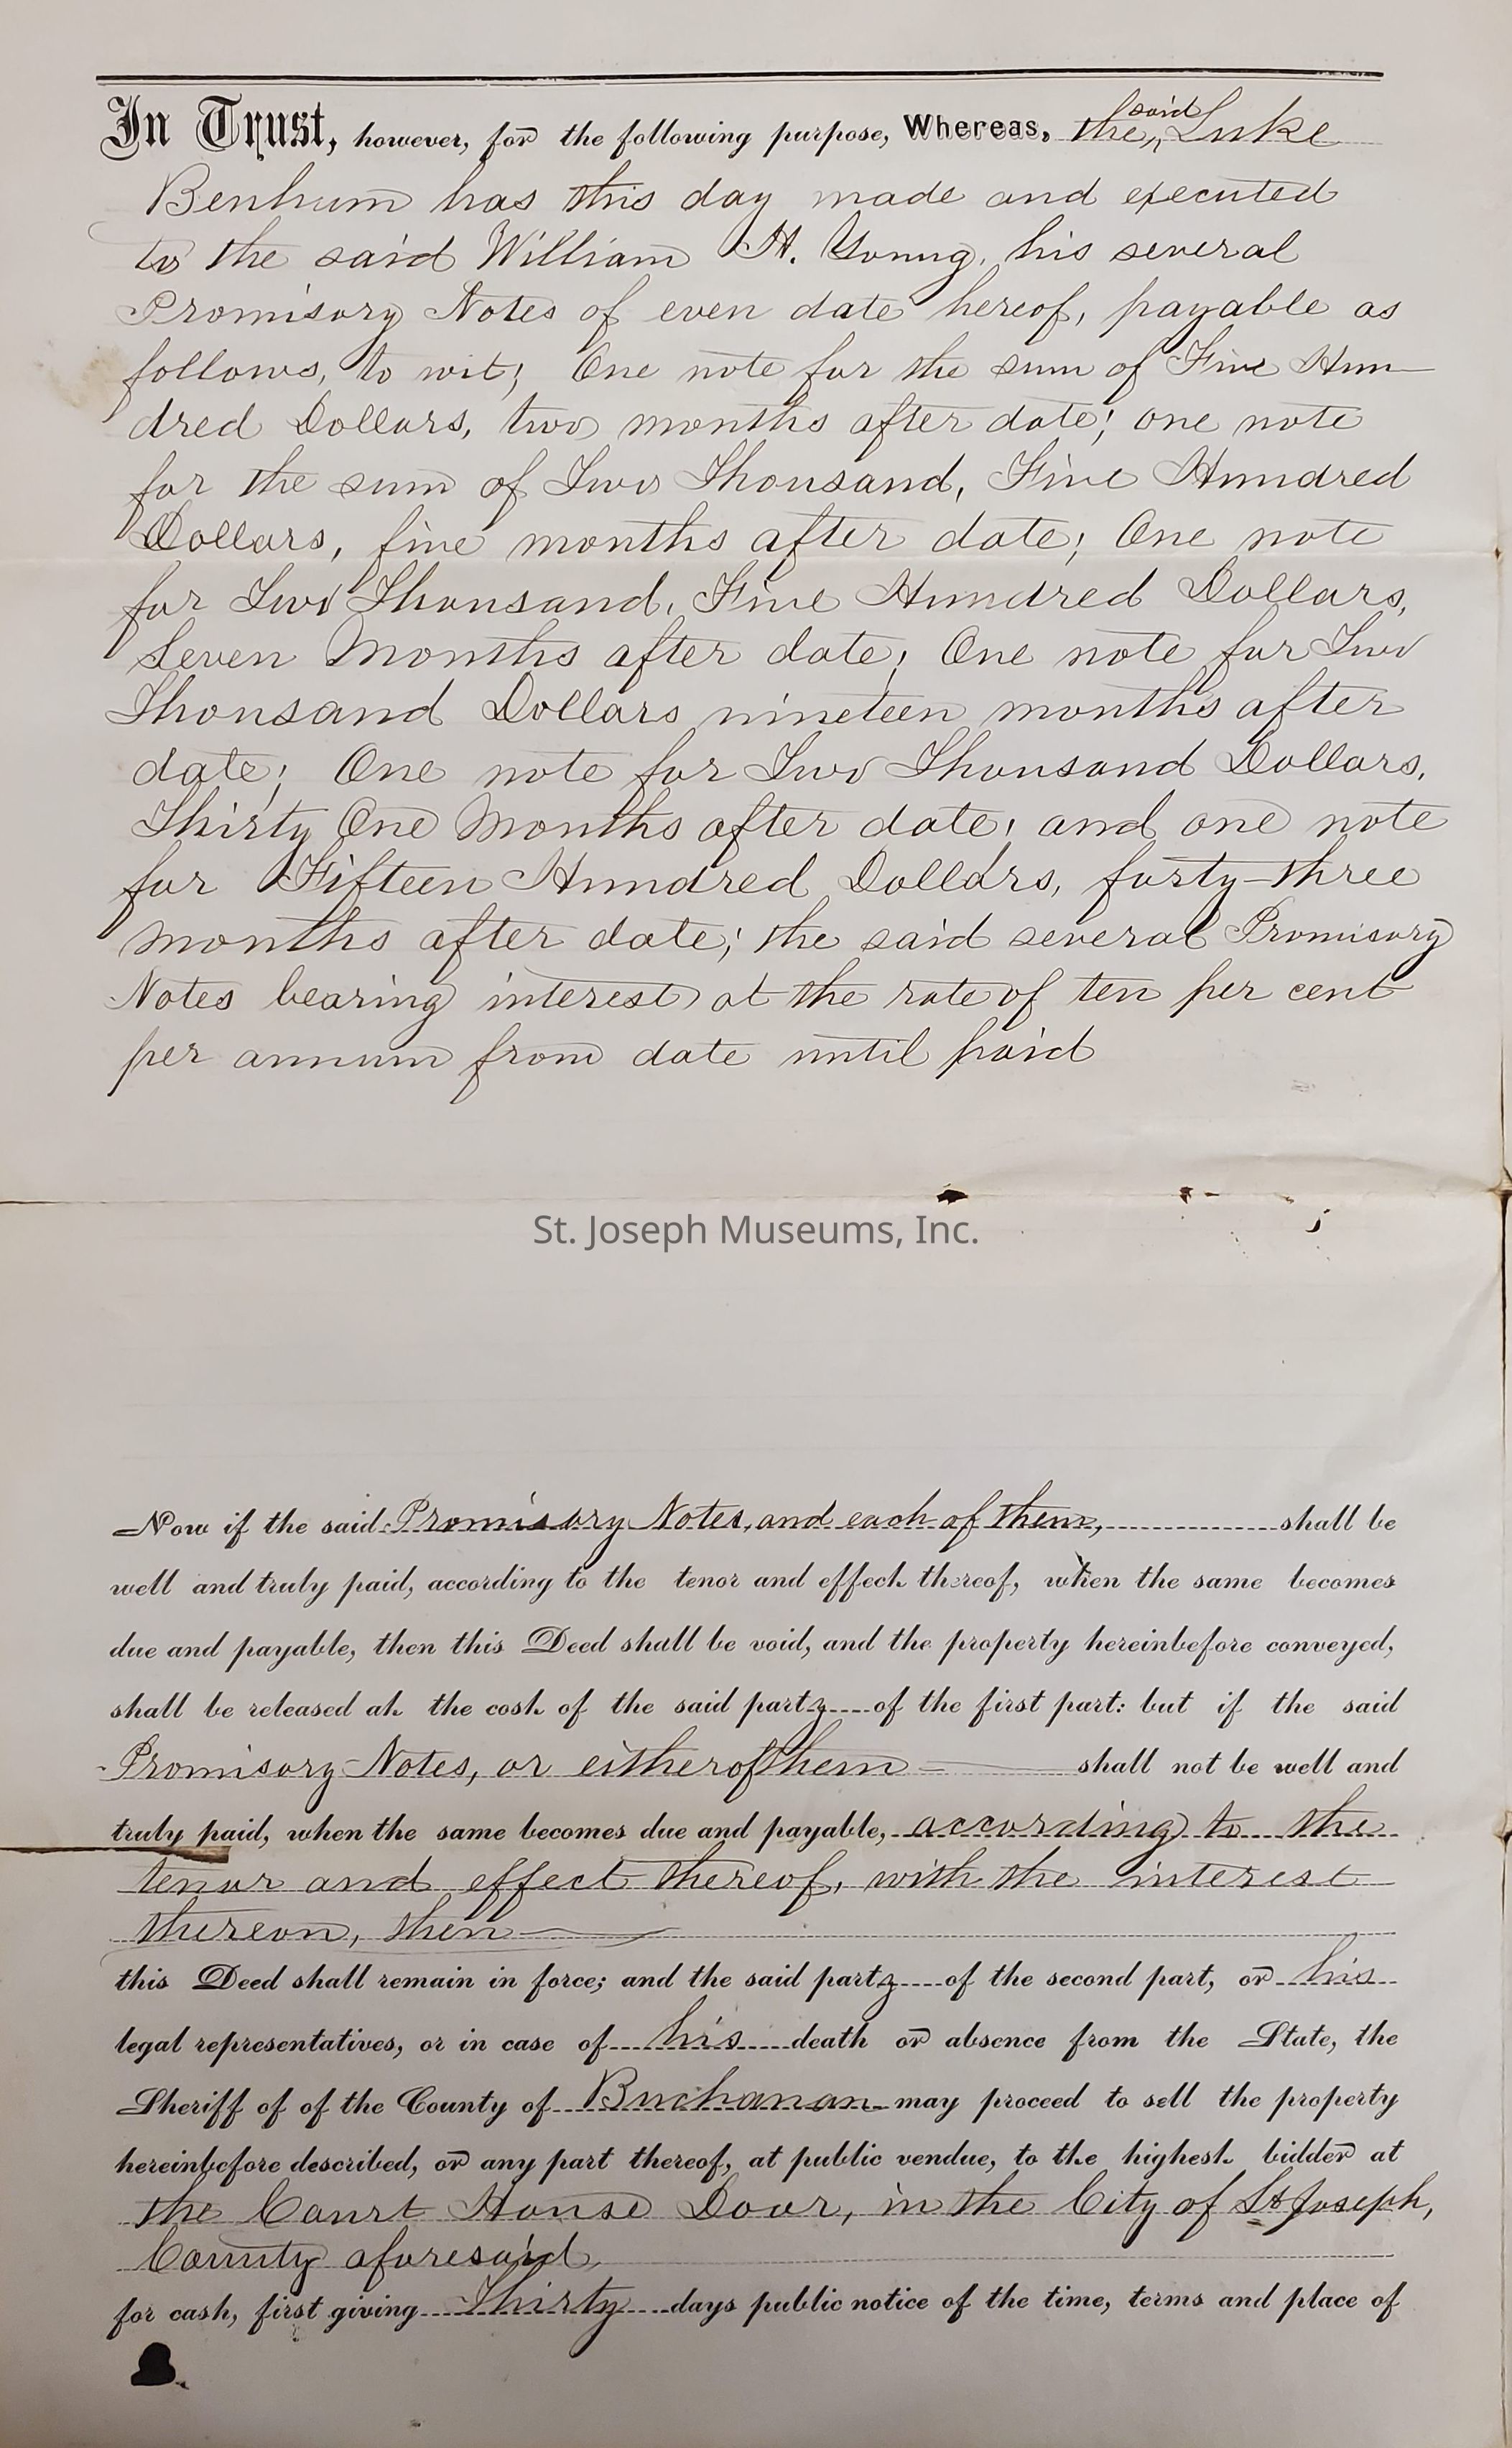 In Trust, however, for the following purpose, Whereas, the said Luke
Benhum has this day made and executed
to the said William H. Young, his several
Promisory Notes of even date hereof, payable as
follows, to wit; One note for the sum of Five Hun-
dred Dollars, two months after date; one note
for the sum of Two Thousand, Five Hundred
Dollars, five months after date; One note
for Two Thousand, Five Hundred Dollars,
Seven Months after date; One note for Two
Thousand Dollars nineteen months after
date; One note for Two Thousand Dollars,
Thirty One Months after date; and one note
for Fifteen Hundred Dollars, forty-three
months after date; the said several Promisory
Notes bearing interest at the rate of ten per cent
per annum from date until paid
St. Joseph Museums, Inc.
Now if the said Promisory Notes, and each of them, shall be
well and truly paid, according to the tenor and effect thereof, when the same becomes
due and payable, then this Deed shall be void, and the property hereinbefore conveyed,
shall be released at the cost of the said party of the first part: but if the said
Promisory Notes, or either of them shall not be well and
truly paid, when the same becomes due and payable, according to the
tenor and effect thereof, with the interest
thereon, then
this Deed shall remain in force; and the said party of the second part, or his
legal representatives, or in case of his death or absence from the State, the
Sheriff of of the County of Buchanan may proceed to sell the property
hereinbefore described, or any part thereof, at public vendue, to the highest bidder at
the Court House Door, in the City of St Joseph,
County aforesaid,
for cash, first giving Thirty days public notice of the time, terms and place of